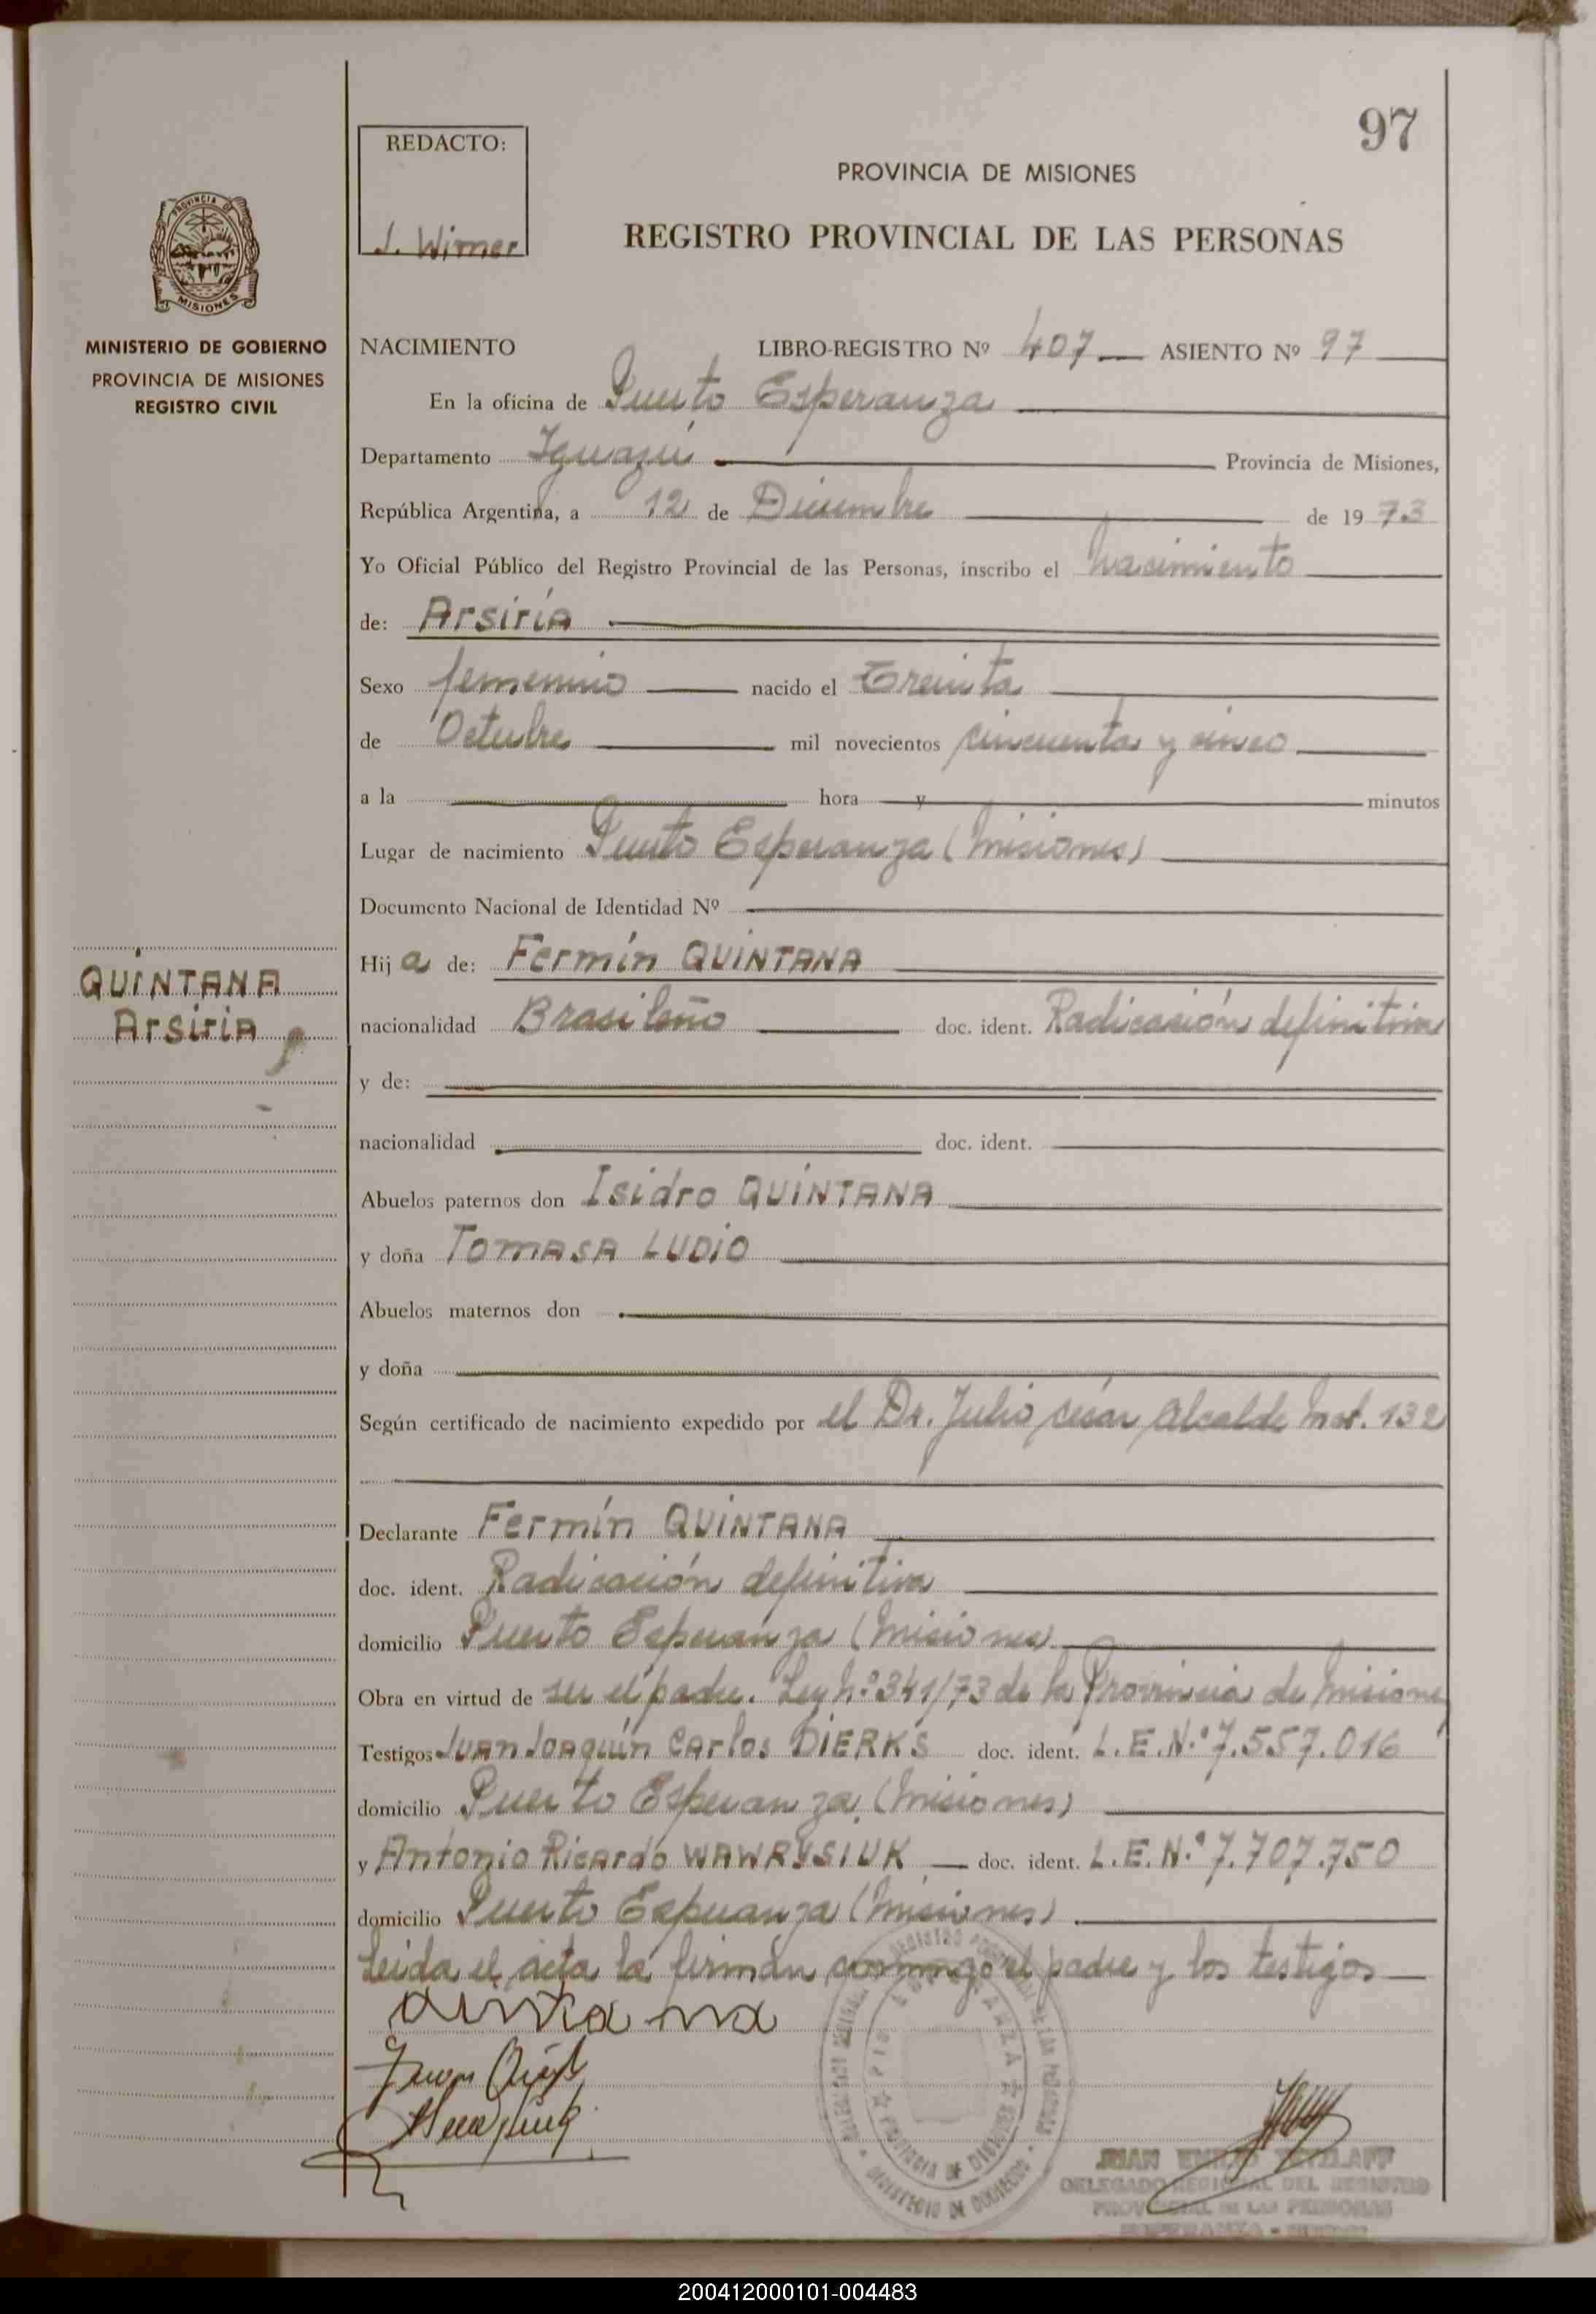 97
REDACTO:
J. Wimer
PROVINCIA DE MISIONES
REGISTRO PROVINCIAL DE LAS PERSONAS
PROVINCIA DE
MISIONES
MINISTERIO DE GOBIERNO
PROVINCIA DE MISIONES
REGISTRO CIVIL
NACIMIENTO LIBRO-REGISTRO Nº 407 ASIENTO Nº 97
En la oficina de Puerto Esperanza
Departamento Iguazú Provincia de Misiones,
República Argentina, a 12 de Diciembre de 1973
Yo Oficial Público del Registro Provincial de las Personas, inscribo el nacimiento
de: Arsiria
Sexo femenino nacido el Treinta
de Octubre mil novecientos cincuenta y cinco
a la hora y minutos
Lugar de nacimiento Puerto Esperanza (Misiones)
Documento Nacional de Identidad Nº
Hija de: Fermín QUINTANA
QUINTANA
Arsiria
nacionalidad Brasileño doc. ident. Radicación definitiva
y de:
nacionalidad doc. ident.
Abuelos paternos don Isidro QUINTANA
y doña TOMASA LUDIO
Abuelos maternos don
y doña
Según certificado de nacimiento expedido por el Dr. Julio césar Alcalde Mat. 132
Declarante Fermín QUINTANA
doc. ident. Radicación definitiva
domicilio Puerto Esperanza (Misiones)
Obra en virtud de ser el padre. Ley Nº 341/73 de la Provincia de Misiones
Testigos Juan Joaquín Carlos DIERKS doc. ident. L.E.N.º 7.557.016
domicilio Puerto Esperanza (Misiones)
y Antonio Ricardo WAWRYSIUK doc. ident. L.E.N.º 7.707.750
domicilio Puerto Esperanza (Misiones)
Leida el acta la firman conmigo el padre y los testigos
JUAN EMILIO
DELEGADO REGIONAL DEL REGISTRO
PROVINCIAL DE LAS PERSONAS
ESPERANZA -
PROVINCIA DE MISIONES
MINISTERIO DE GOBIERNO
200412000101-004483